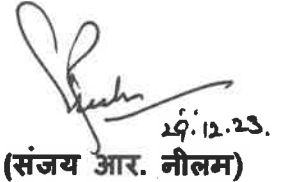 29.12.23.
(संजय आर. नीलम)